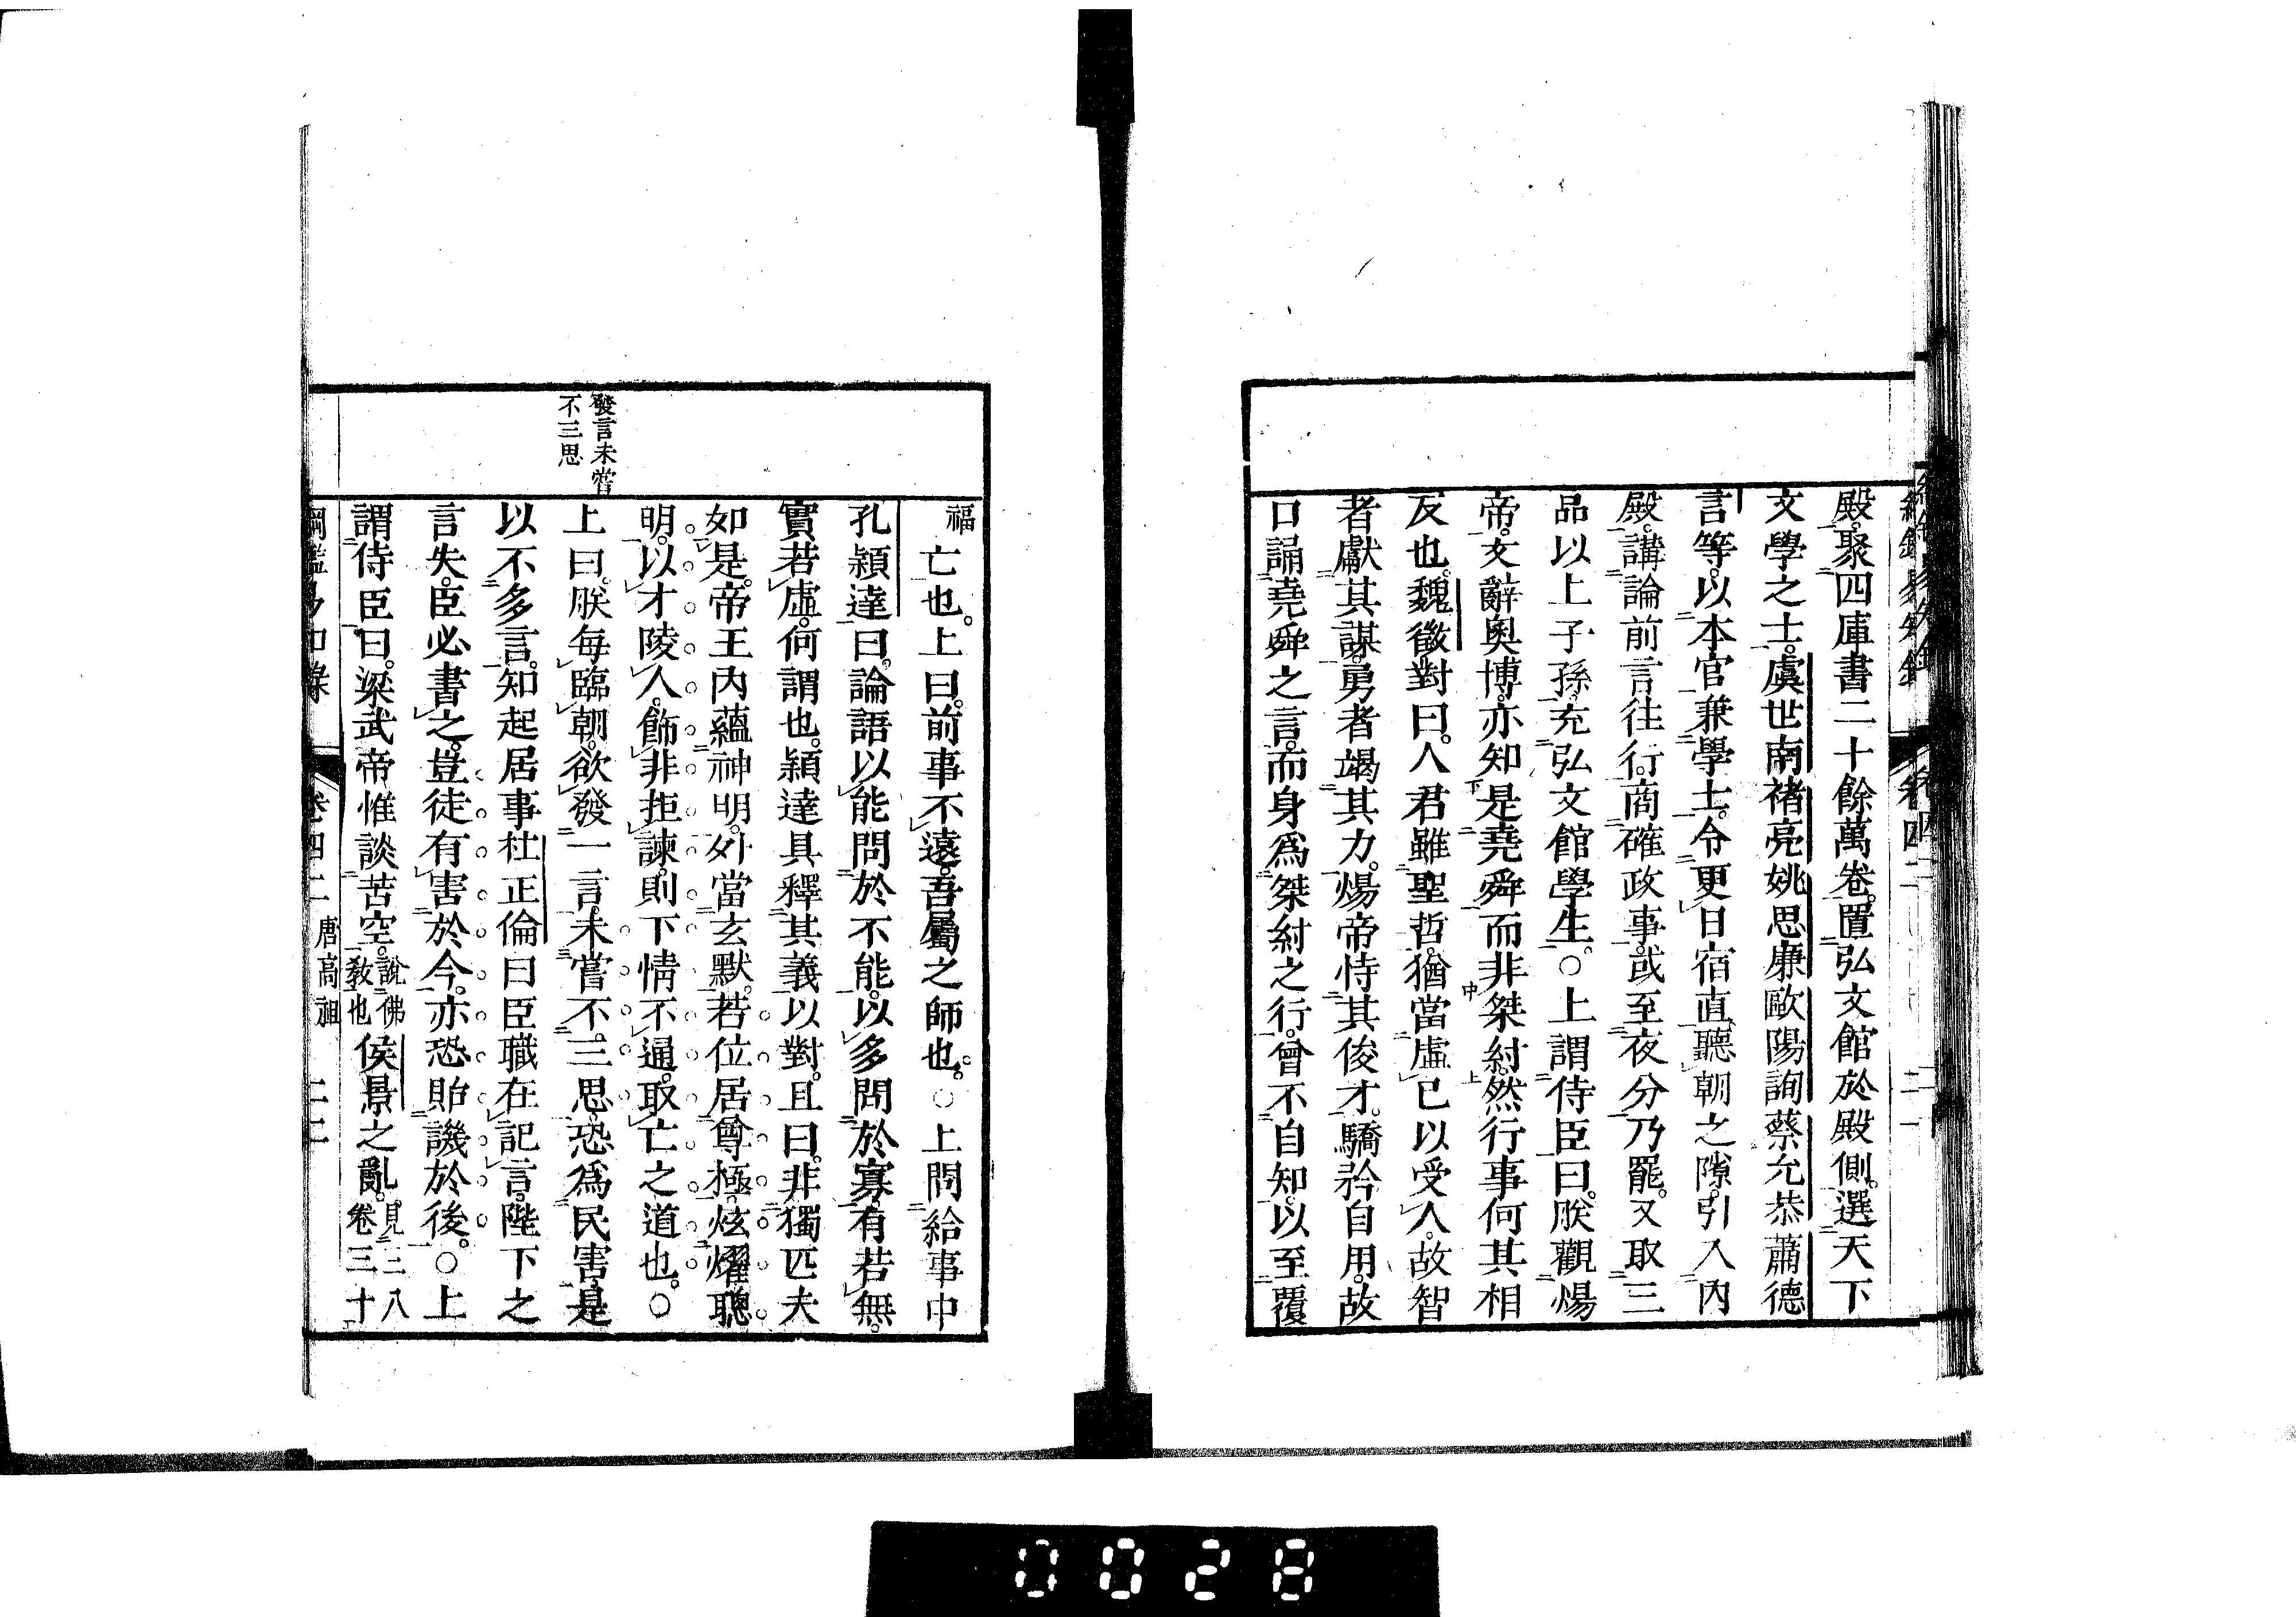 殿。聚四庫書二十餘萬卷。置弘文館於殿側。選天下
文學之士。虞世南褚亮姚思廉歐陽詢蔡允恭蕭德
言等。以本官兼學士。令更日宿直。聽朝之隙。引入內
殿。講論前言往行。商確政事。或至夜分乃罷。又取三
品以上子孫。充弘文館學生。○上謂侍臣曰。朕觀煬
帝。文辭奧博。亦知是堯舜而非桀紂。然行事何其相
反也。魏徵對曰。人君雖聖哲。猶當虛己以受人。故智
者獻其謀。勇者竭其力。煬帝恃其俊才。驕矜自用。故
口誦堯舜之言。而身爲桀紂之行。曾不自知。以至覆
福
亡也。上曰。前事不遠。吾屬之師也。○上問給事中
孔穎達曰。論語以能問於不能。以多問於寡。有若無。
實若虛。何謂也。穎達具釋其義以對。且曰。非獨匹夫
如是。帝王內蘊神明。外當玄默。若位居尊極。炫燿聰
明。以才陵人。飾非拒諫。則下情不通。取亡之道也。○
發言未嘗
不三思
上曰。朕每臨朝。欲發一言。未嘗不三思。恐爲民害。是
以不多言。知起居事杜正倫曰。臣職在記言。陛下之
言失。臣必書之。豈徒有害於今。亦恐貽譏於後。○上
謂侍臣曰。梁武帝惟談苦空。說佛教也侯景之亂。見三八卷三十
綱鑑易知錄 卷四二 唐高祖 二二
0028